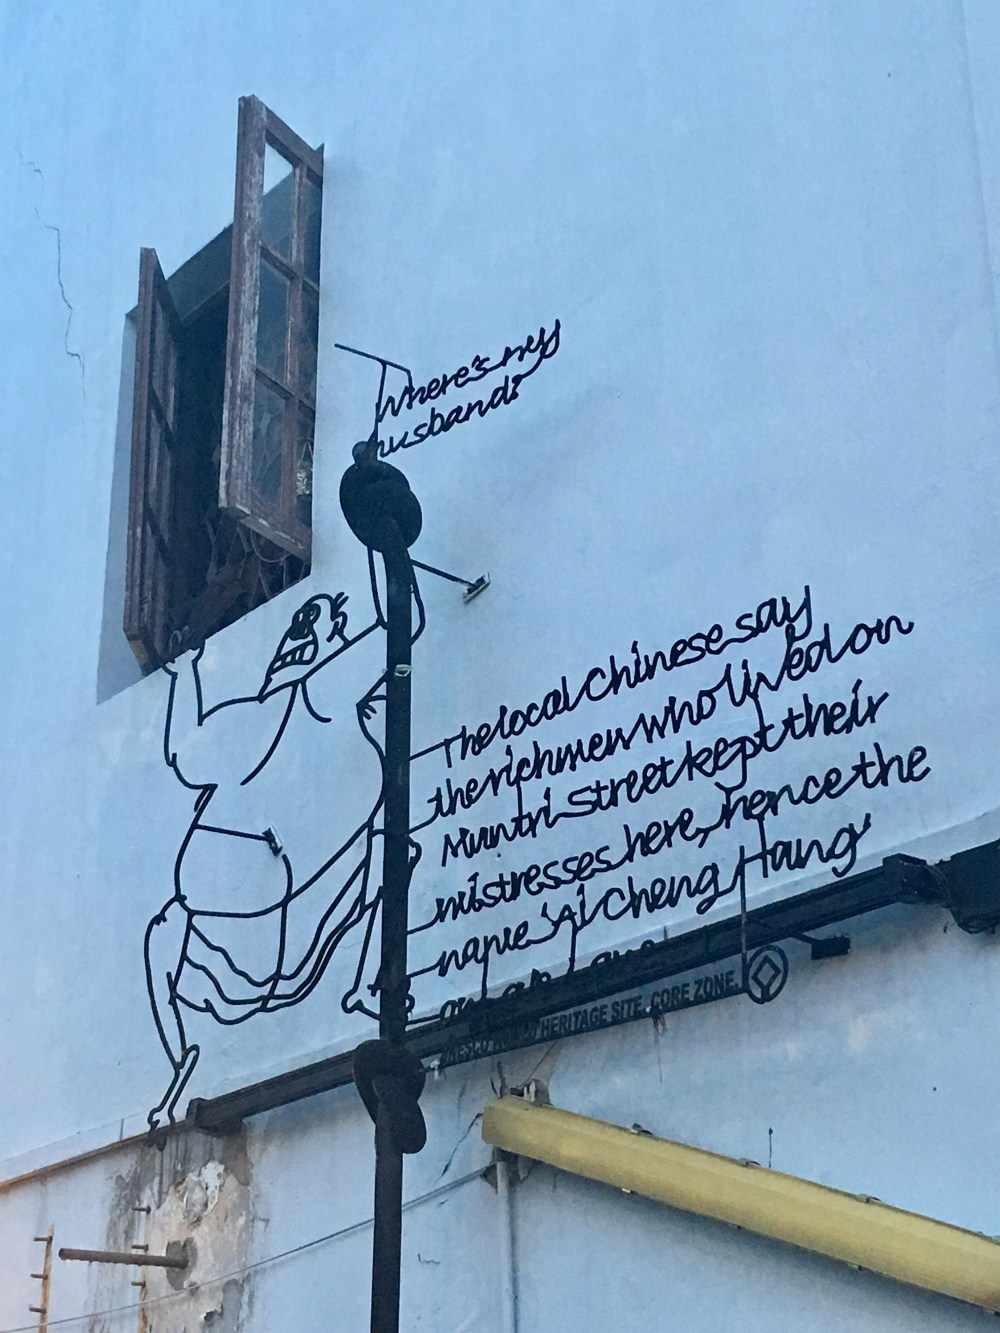 Where's my
husband?
The local Chinese say
the rich men who lived on
Muntri Street kept their
mistresses here, hence the
name 'Ai Cheng Hang'
or Love Lane
UNESCO WORLD HERITAGE SITE. CORE ZONE.